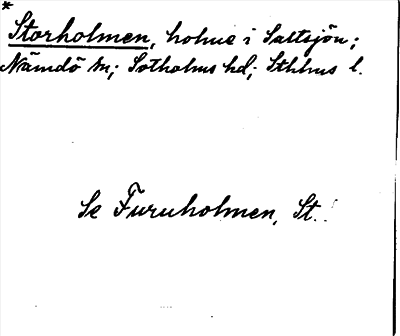 *
Storholmen, holme i Saltsjön;
Nämdö sn; Sotholms hd; Sthlms l.
Se Furuholmen, St..